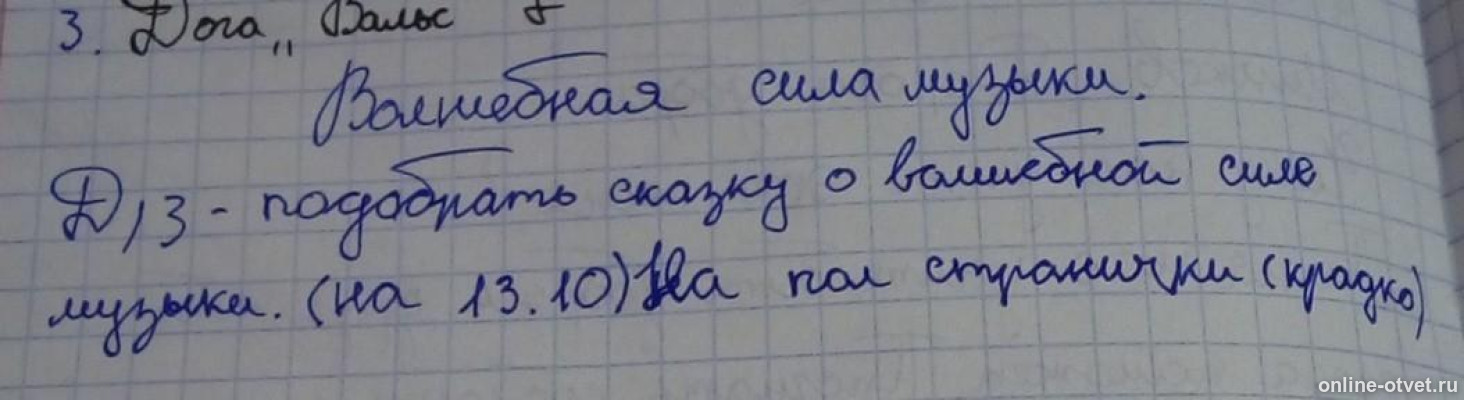 3. Дога „ Вальс
Волшебная сила музыки.
Д/З - подобрать сказку о волшебной силе
музыки. (на 13.10) На пол странички (крадко)
online-otvet.ru